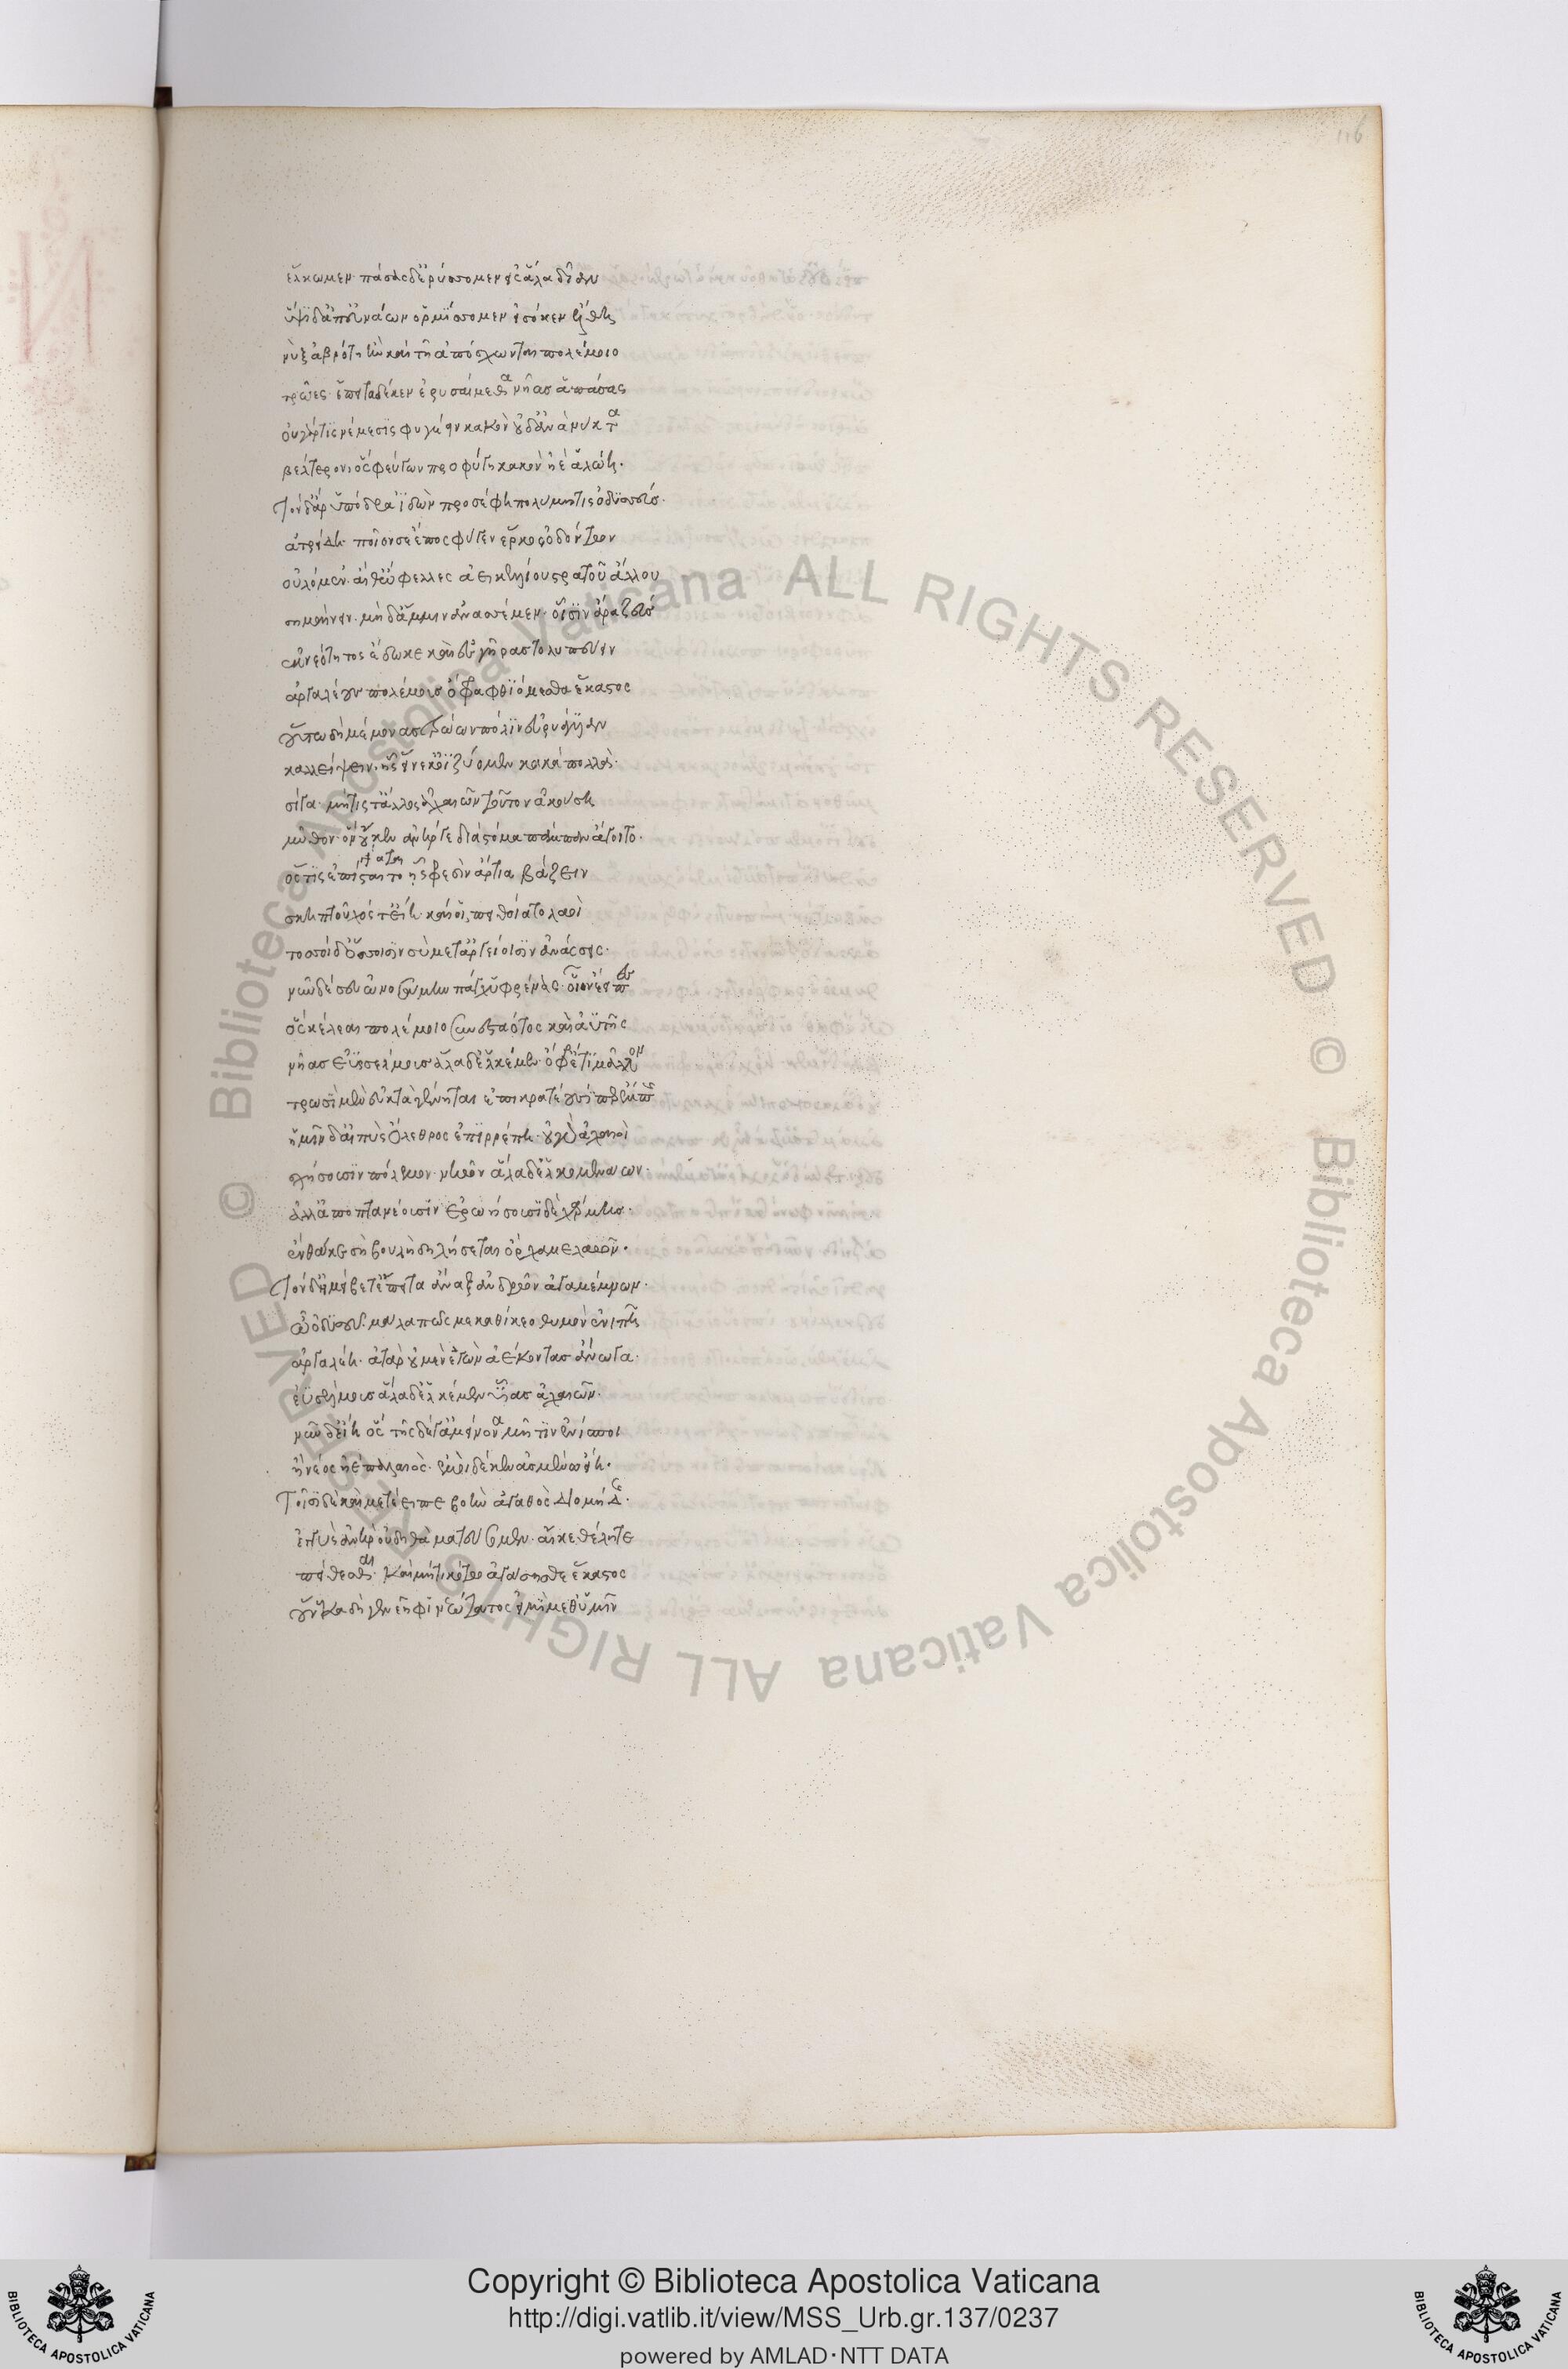 ἕλκωμεν· πάσας δὲ ἐρύσσομεν εἰς ἅλα δῖαν
ὕψι δ' ἀπ' εὐνάων ὁρμίσσομεν εἰσόκεν ἔλθῃ
νὺξ ἀβρότη ἢν καὶ τῇ ἀπόσχωνται πολέμοιο
τρῶες· ἔπειτα δέ κεν ἐρυσαίμεθα νῆας ἁπάσας
οὐ γάρ τις νέμεσις φυγέειν κακὸν οὐδ' ἀνὰ νύκτα
βέλτερον ὃς φεύγων προφύγῃ κακὸν ἠὲ ἁλώῃ·
Τὸν δ' ἄρ' ὑπόδρα ἰδὼν προσέφη πολύμητις ὀδυσσεύς·
ἀτρείδη· ποῖόν σε ἔπος φύγεν ἕρκος ὀδόντων
οὐλόμεν· αἴθ' ὤφελλες ἀεικελίου στρατοῦ ἄλλου
σημαίνειν· μὴ δ' ἄμμιν ἀνασσέμεν· οἷσιν ἄρα ζεύς
ἐκ νεότητος ἔδωκε καὶ ἐς γῆρας τολυπεύειν
ἀργαλέους πολέμους ὄφρα φθιόμεσθα ἕκαστος
οὕτω δὴ μέμονας τρώων πόλιν εὐρυάγυιαν
καλλείψειν· ἧς εἵνεκ' ὀϊζύομεν κακὰ πολλά·
σίγα· μή τίς τ' ἄλλος ἀχαιῶν τοῦτον ἀκούσῃ
μῦθον· ὃν οὔ κεν ἀνήρ γε διὰ στόμα πάμπαν ἄγοιτο·
ὅς τις ἐπίσταιτο ᾗσι φρεσὶν ἄρτια βάζειν
σκηπτοῦχός τ' εἴη· καί οἱ πειθοίατο λαοὶ
τοσσοίδ' ὅσσοισιν σὺ μετ' ἀργείοισιν ἀνάσσεις·
νῦν δέ σευ ὠνοσάμην πάγχυ φρένας· οἷον ἔειπες
ὃς κέλεαι πολέμοιο συνεσταότος καὶ ἀϋτῆς
νῆας ἐϋσσέλμους ἅλαδ' ἑλκέμεν· ὄφρ' ἔτι μᾶλλον
τρωσὶ μὲν εὐκτὰ γένηται ἐπικρατέουσί περ ἔμπης
ἡμῖν δ' αἰπὺς ὄλεθρος ἐπιρρέπῃ· οὐ γὰρ ἀχαιοὶ
σχήσουσιν πόλεμον· νηῶν ἅλαδ' ἑλκομενάων·
ἀλλ' ἀποπτανέουσιν ἐρωήσουσι δὲ χάρμης·
ἔνθά κε σὴ βουλὴ δηλήσεται ὄρχαμε λαῶν·
Τὸν δ' ἠμείβετ' ἔπειτα ἄναξ ἀνδρῶν ἀγαμέμνων·
ὦ ὀδυσεῦ· μάλα πώς με καθίκεο θυμὸν ἐνιπῇ
ἀργαλέῃ· ἀτὰρ οὐ μὲν ἐγὼν ἀέκοντας ἄνωγα·
ἐϋσσέλμους ἅλαδ' ἑλκέμεν υἷας ἀχαιῶν·
νῦν δ' εἴη ὃς τῆς δέ γ' ἀμείνονα μῆτιν ἐνίσποι
ἢ νέος ἠὲ παλαιός· ἐμοὶ δέ κεν ἀσμένῳ εἴη·
Τοῖσι δὲ καὶ μετέειπε βοὴν ἀγαθὸς διομήδης·
ἐγγὺς ἀνὴρ οὐ δηθὰ ματεύσομεν· αἴ κε θέλητε
πείθεσθαι· καὶ μή τι κότῳ ἀγάσησθε ἕκαστος
οὕνεκα δὴ γενεῆφι νεώτατος εἰμὶ μεθ' ὑμῖν
Copyright © Biblioteca Apostolica Vaticana
http://digi.vatlib.it/view/MSS_Urb.gr.137/0237
powered by AMLAD·NTT DATA